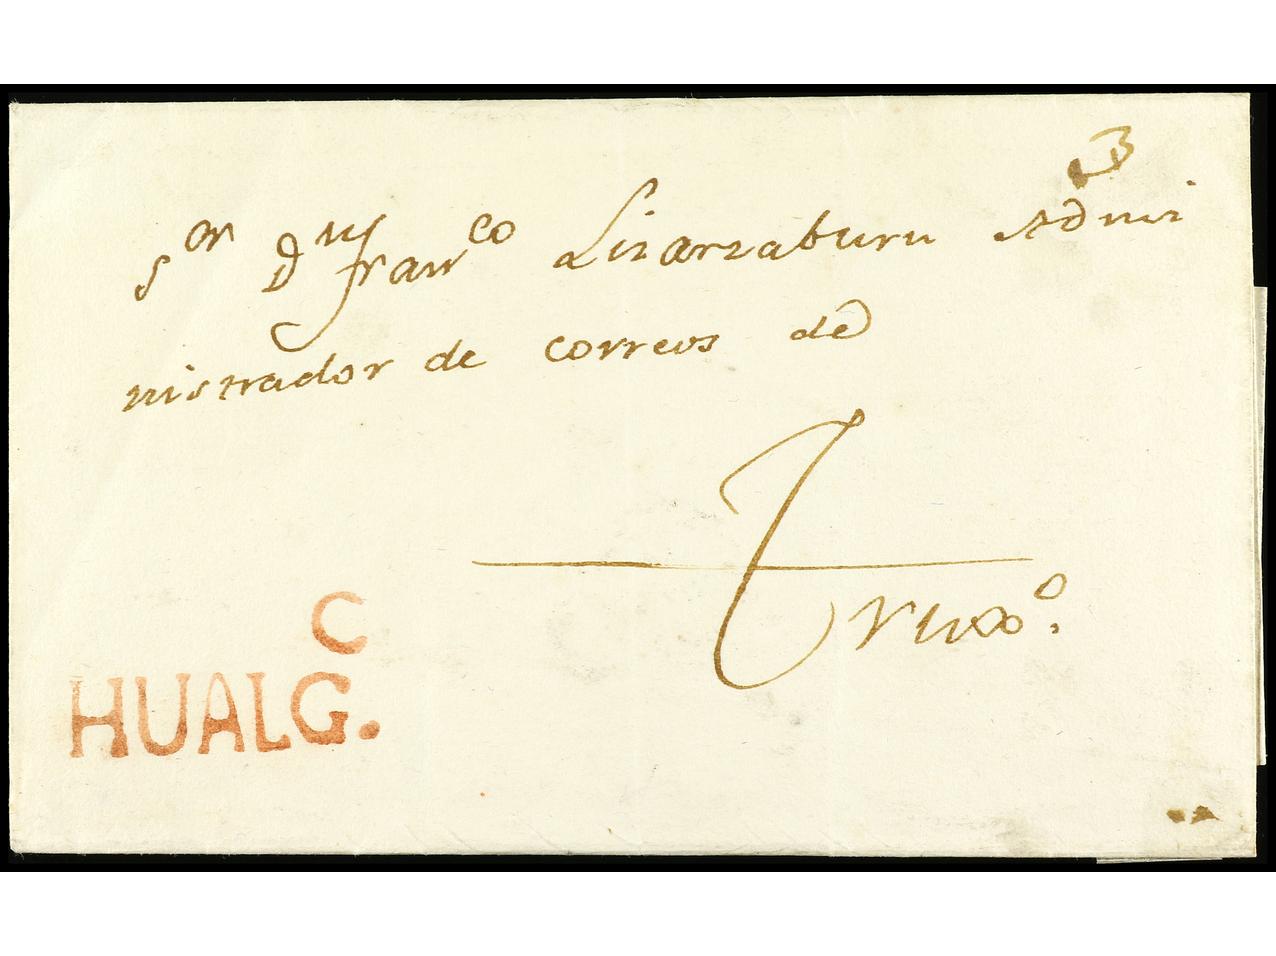 3
Sor Dn Franco Lizarzaburu Admi
nistrador de correos de
Truxo.
C
HUALG.